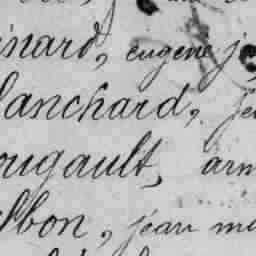 inard, eugène je
lanchard, je
ougault, arm
lbon, jean ma